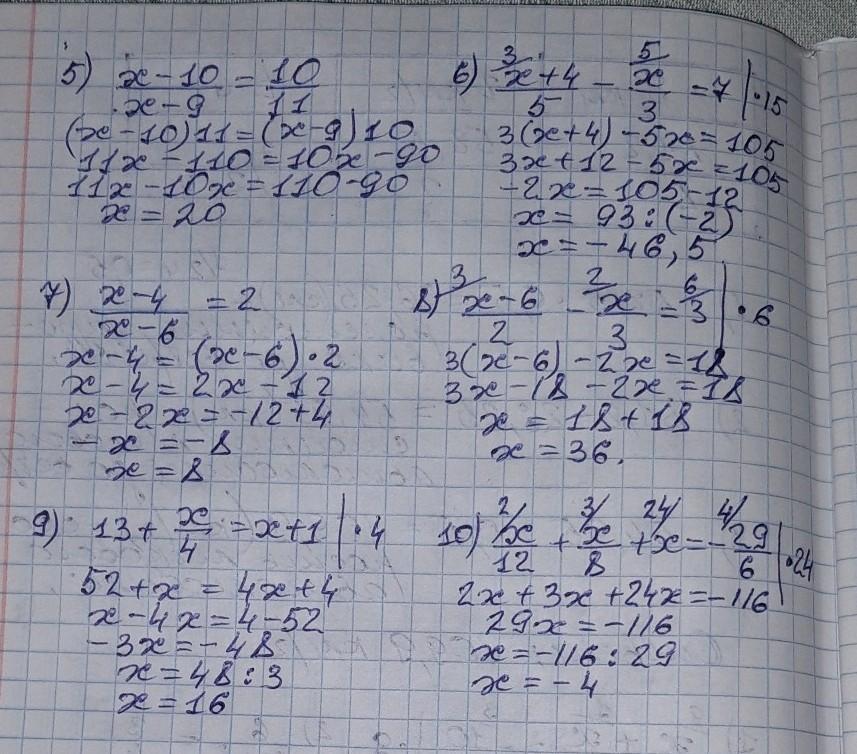 5) (x-10)/(x-9) = 10/11
(x-10)11=(x-9)10
11x-110=10x-90
11x-10x=110-90
x=20
6) ³/(x+4)/5 - ⁵/x/3 =7 |·15
3(x+4)-5x=105
3x+12-5x=105
-2x=105-12
x= 93:(-2)
x=-46,5
7) (x-4)/(x-6) =2
x-4=(x-6)·2
x-4=2x-12
x-2x=-12+4
-x=-8
x=8
8) ³/(x-6)/2 - ²/x/3 = ⁶/3 |·6
3(x-6)-2x=18
3x-18-2x=18
x=18+18
x=36.
9) 13+x/4=x+1 |·4
52+x=4x+4
x-4x=4-52
-3x=-48
x=48:3
x=16
10) ²/x/12 + ³/x/8 + ²⁴/x= ⁴/-29/6 |·24
2x+3x+24x=-116
29x=-116
x=-116:29
x=-4